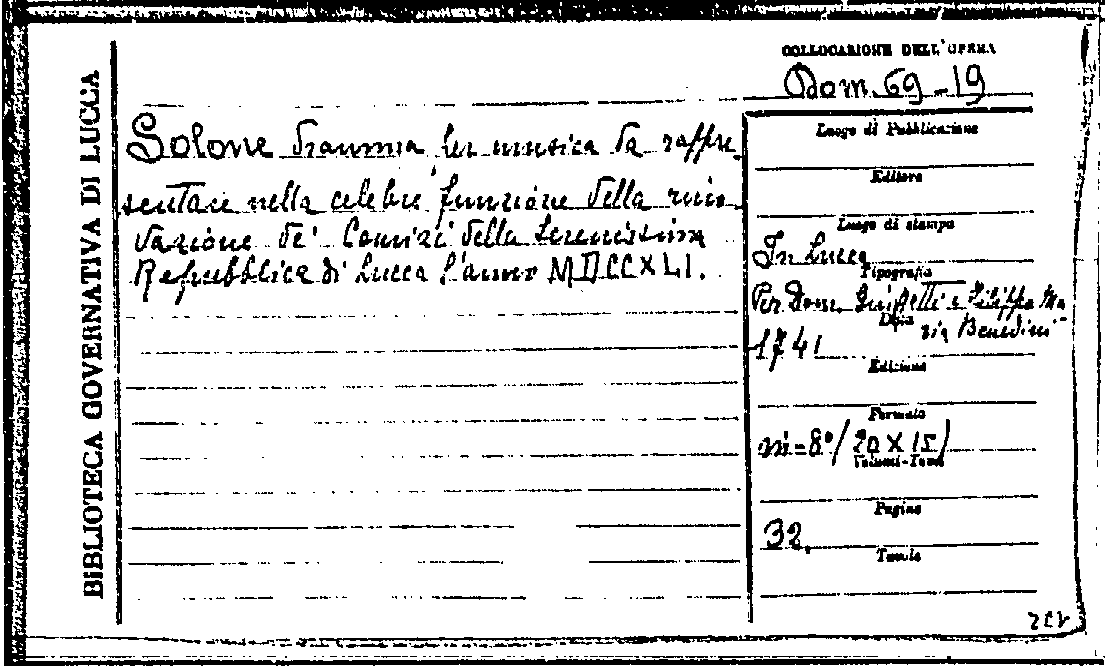 BIBLIOTECA GOVERNATIVA DI LUCCA
COLLOCAZIONE DELL'OPERA
Dom. 69-19
Solone dramma per musica da rappre
sentare nella celebre funzione della rino
vazione de' Comizi della Serenissima
Repubblica di Lucca l'anno MDCCXLI.
Luogo di Pubblicazione
Editore
Luogo di stampa
In Lucca
Tipografia
Per Dom. e Filippo Ma
ria Benedini
Data
1741
Edizione
Formato
in-8°/20 X 15/
Volumi-Tomi
Pagine
32.
Tavole